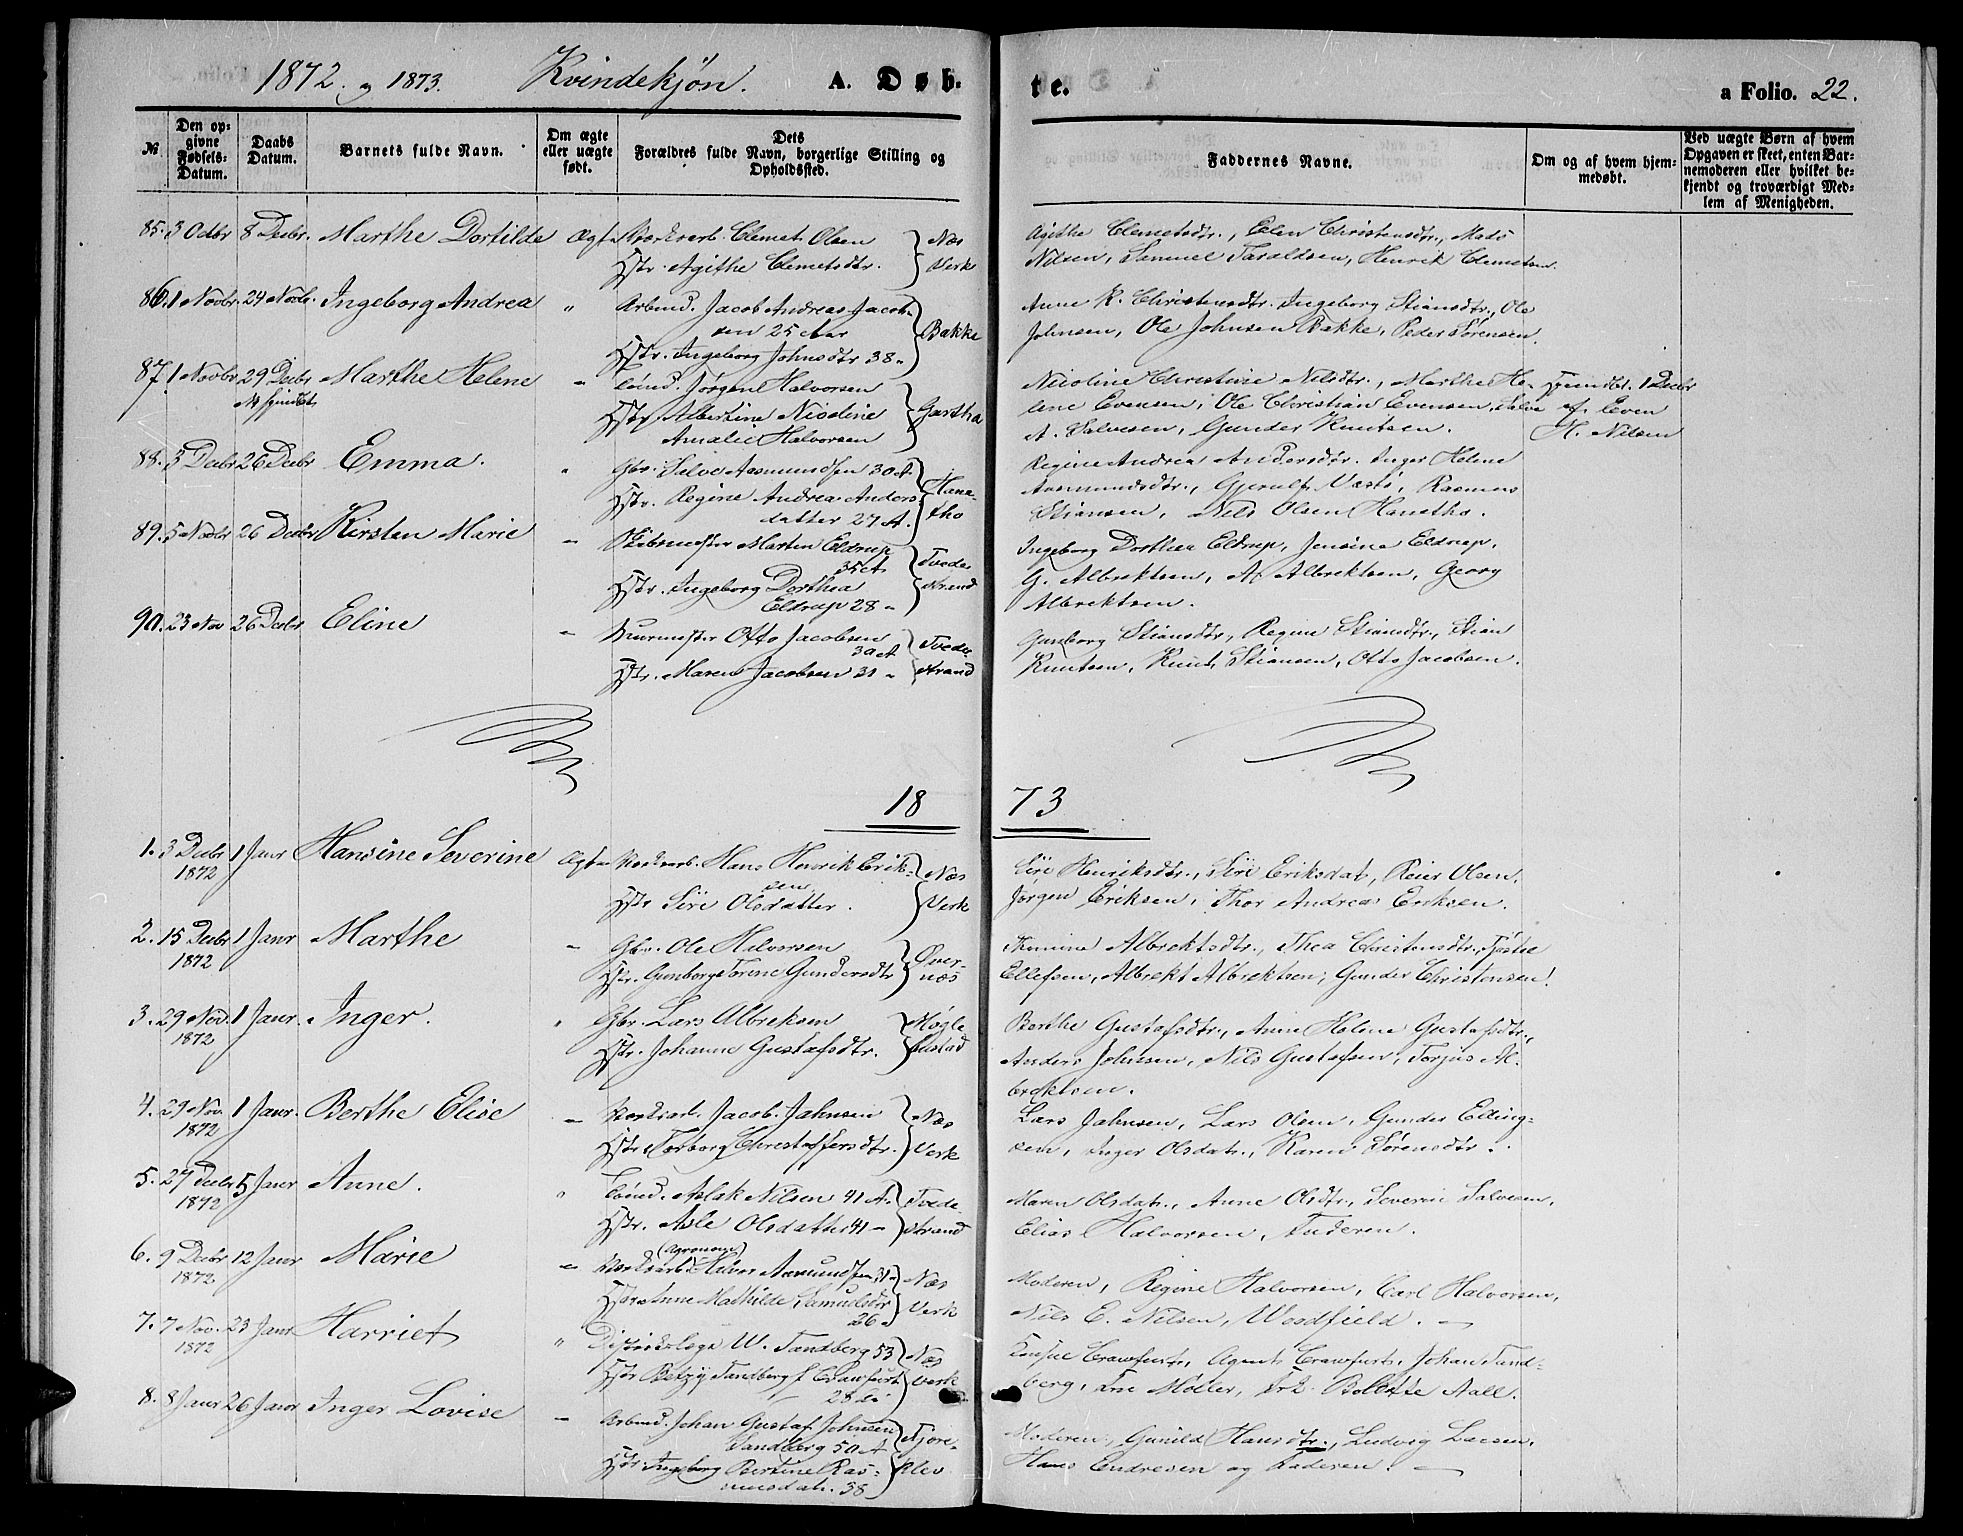 1872 og 1873. Kvindekjøn. A. Døb-
te. a Folio. 22.
№ Den op-givne Fødsels-Datum. Daabs Datum. Barnets fulde Navn. Om ægte eller uægte født. Dets Forældres fulde Navn, borgerlige Stilling og Opholdssted.
Faddernes Navne. Om og af hvem hjem-medøbt. Ved uægte Børn af hvem Opgaven er skeet, enten Bar-nemoderen eller hvilket be-kjendt og troværdigt Med-lem af Menigheden.
85. 3 Octbr 8 Decbr. Marthe Dortilde Ægte Værksarb. Clemet Olsen } Næs
Hstr. Agithe Clemetsdtr. } Verk
Agithe Clemetsdtr., Elen Christensdtr., Mads
Nilsen, Samuel Taraldsen, Henrik Clemetsen.
86. 1 Novbr. 24 Novb. Ingeborg Andrea " Arbmd. Jacob Andreas Jacob-
sen 25 Aar } Bakke
Hstr. Ingeborg Johnsdtr 38 "
Anne K. Christensdtr. Ingeborg Stiansdtr., Ole
Johnsen, Ole Johnsen Bakke, Peder Sørensen.
87. 1 Novbr 29 Decbr Marthe Helene " Sømd. Jørgen Halvorsen
Hstr. Albertine Nicoline } Gartha
Amalie Halvorsen
Nicoline Christine Nilsdtr., Marthe He-
lene Evensen, Ole Christian Evensen, Salve
A. Salvesen, Gunder Knutsen.
Hjemdbt. 1 Decbr
af Even
H. Nilsen
88. 5 Decbr 26 Decbr Emma. " Gbr. Salve Aasmundsen 30 A
Hstr. Regine Andrea Anders } Hane-
datter 27 A. } tho
Regine Andrea Andersdtr. Inger Helene
Aasmundsdtr., Gjerulf Næss, Rasmus
Stiansen, Nils Olsen Hanetho.
89. 5 Novbr 26 Decbr Kirsten Marie " Skibsmester Marten Eltrup
35 A } Tvede
Hstr. Ingeborg Dorthea } strand
Eltrup 28 "
Ingeborg Dorthea Eltrup, Jensine Eltrup,
G. Albrektsen, A. Albrektsen, Georg
Albrektsen.
90. 23 Nov 26 Decbr Eline " Murmester Otto Jacobsen
30 A } Tvede
Hstr. Maren Jacobsen 31 " } strand
Gunborg Stiansdtr, Regine Stiansdtr., Stian
Knutsen, Knut Stiansen, Otto Jacobsen.
18 73
1. 3 Decbr 1872 1 Janr Hansine Severine Ægte Værksarb. Hans Henrik Erik-
sen } Næs
Hstr Sire Olsdatter. } Verk
Sire Henriksdtr., Sire Eriksdat, Reier Olsen,
Jørgen Eriksen, Thor Andreas Eriksen.
2. 15 Decbr 1872 1 Janr Marthe " Gbr. Ole Halvorsen } Øver-
Hstr. Gunborg Torene Gundersdtr } næs
Albrektsdtr., Thea Christensdtr.,
Ellefsen, Albrekt Albrektsen, Gunder Christensen.
3. 29 Nov. 1872 1 Janr. Inger. " Gbr. Lars Albreksen } Møgle
Hstr. Johanne Gustafsdtr. } bustad
Berthe Gustafsdtr., Anne Helene Gustafsdtr.,
Anders Johnsen, Nils Gustafsen, Torjus Al-
brektsen.
4. 29 Nov. 1872 1 Janr. Berthe Elise " Værksarb. Jacob Jahnsen } Næs
Hstr. Torborg Christoffersdtr. } Verk
Lars Jahnsen, Lars Olsen, Gunder Elling-
sen, Inger Olsdatr., Karen Sørensdtr.
5. 27 Decbr 1872 5 Janr Anne. " Sømd. Aslak Nilsen 41 A. } Tvede
Hstr. Asle Olsdatter 41 " } strand
Maren Olsdatr., Anne Olsdtr., Severin Salvesen,
Elias Halvorsen, Faderen.
6. 9 Decbr 1872 12 Janr Marie " (Agronom)
Værksarb. Halvor Aasmundsen 31 } Næs
Hstr Anne Mathilde Samuelsdtr } Verk
26 "
Moderen, Regine Halvorsen, Carl Halvorsen,
Nils E. Nilsen, Woodfield.
7. 7 Nov. 1872 23 Janr Harriet " Distriktslæge W. Sandberg 53 } Næs
Hstr Betzy Sandberg f. Crawfurt } Verk
28
Crawfurt, Agent Crawfurt, Johan Sand-
berg, Møller, Bolette Aall.
8. 8 Janr 26 Janr Inger Lovise " Arbmd. Johan Gustaf Johnsen
Sandberg 50 A } Fjore-
Hstr. Ingeborg Bertine Ras- } klev
musdatr. 38
Moderen, Gunild Hansdtr., Ludvig Larsen,
Hans Endresen og Faderen.